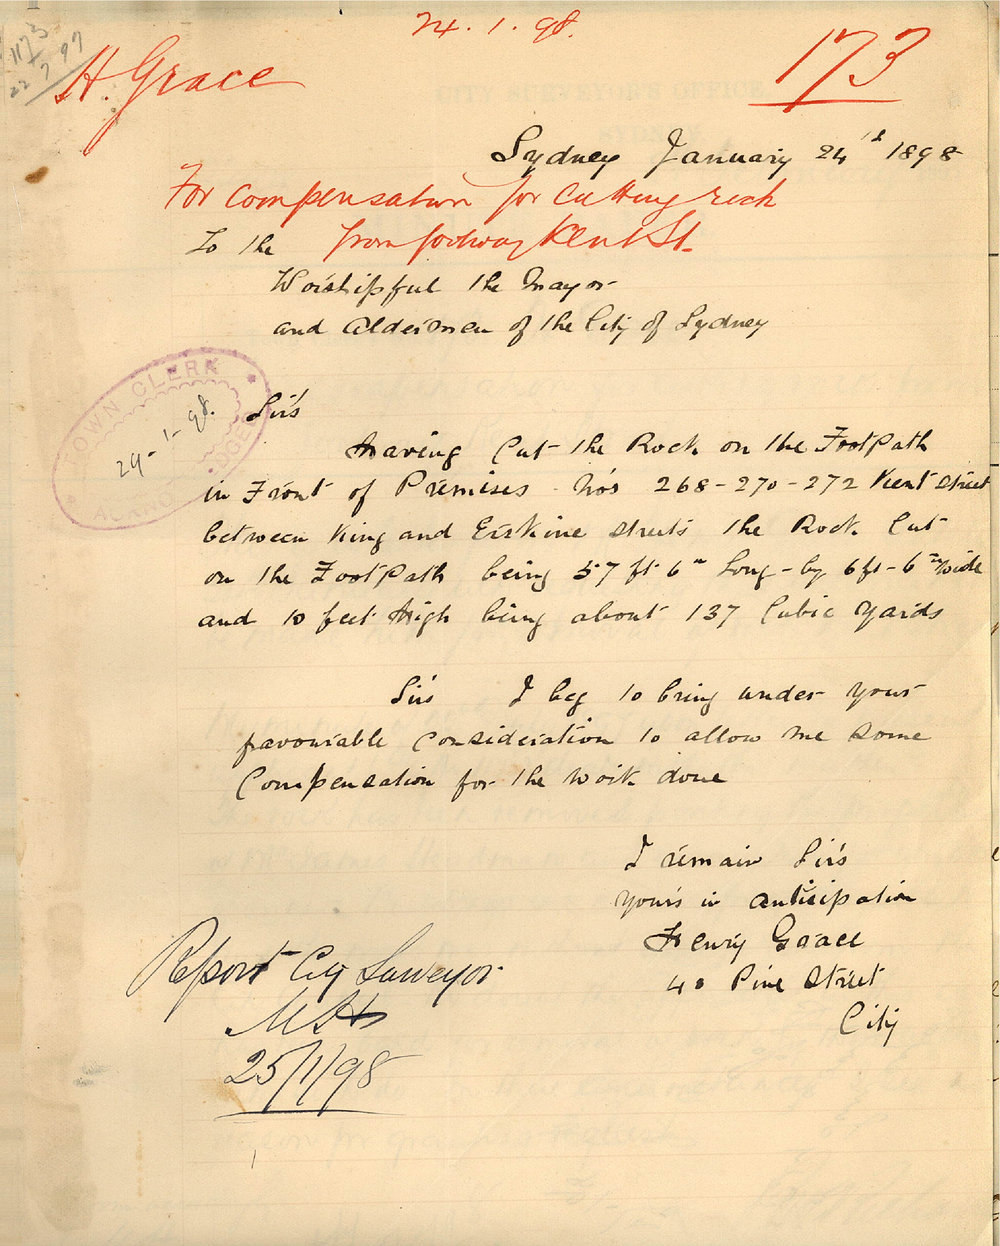 1173
22/7 97
24.1.98.
H. Grace
173
Sydney January 24th 1898
For compensation for cutting rock
from footway Kent St.
To the
Worshipful the Mayor
and Aldermen of the City of Sydney
TOWN CLERK
24-1-98.
Sirs
Having Cut the Rock on the FootPath
in Front of Premises No's 268-270-272 Kent Street
between King and Erskine Streets the Rock Cut
on the FootPath being 57 ft 6in Long - by 6 ft - 6in wide
and 10 feet High being about 137 Cubic Yards
Sirs I beg to bring under your
favourable consideration to allow me some
Compensation for the work done
I remain Sirs
Yours in anticipation
Henry Grace
40 Pine Street
City
Report City Surveyor
25/1/98